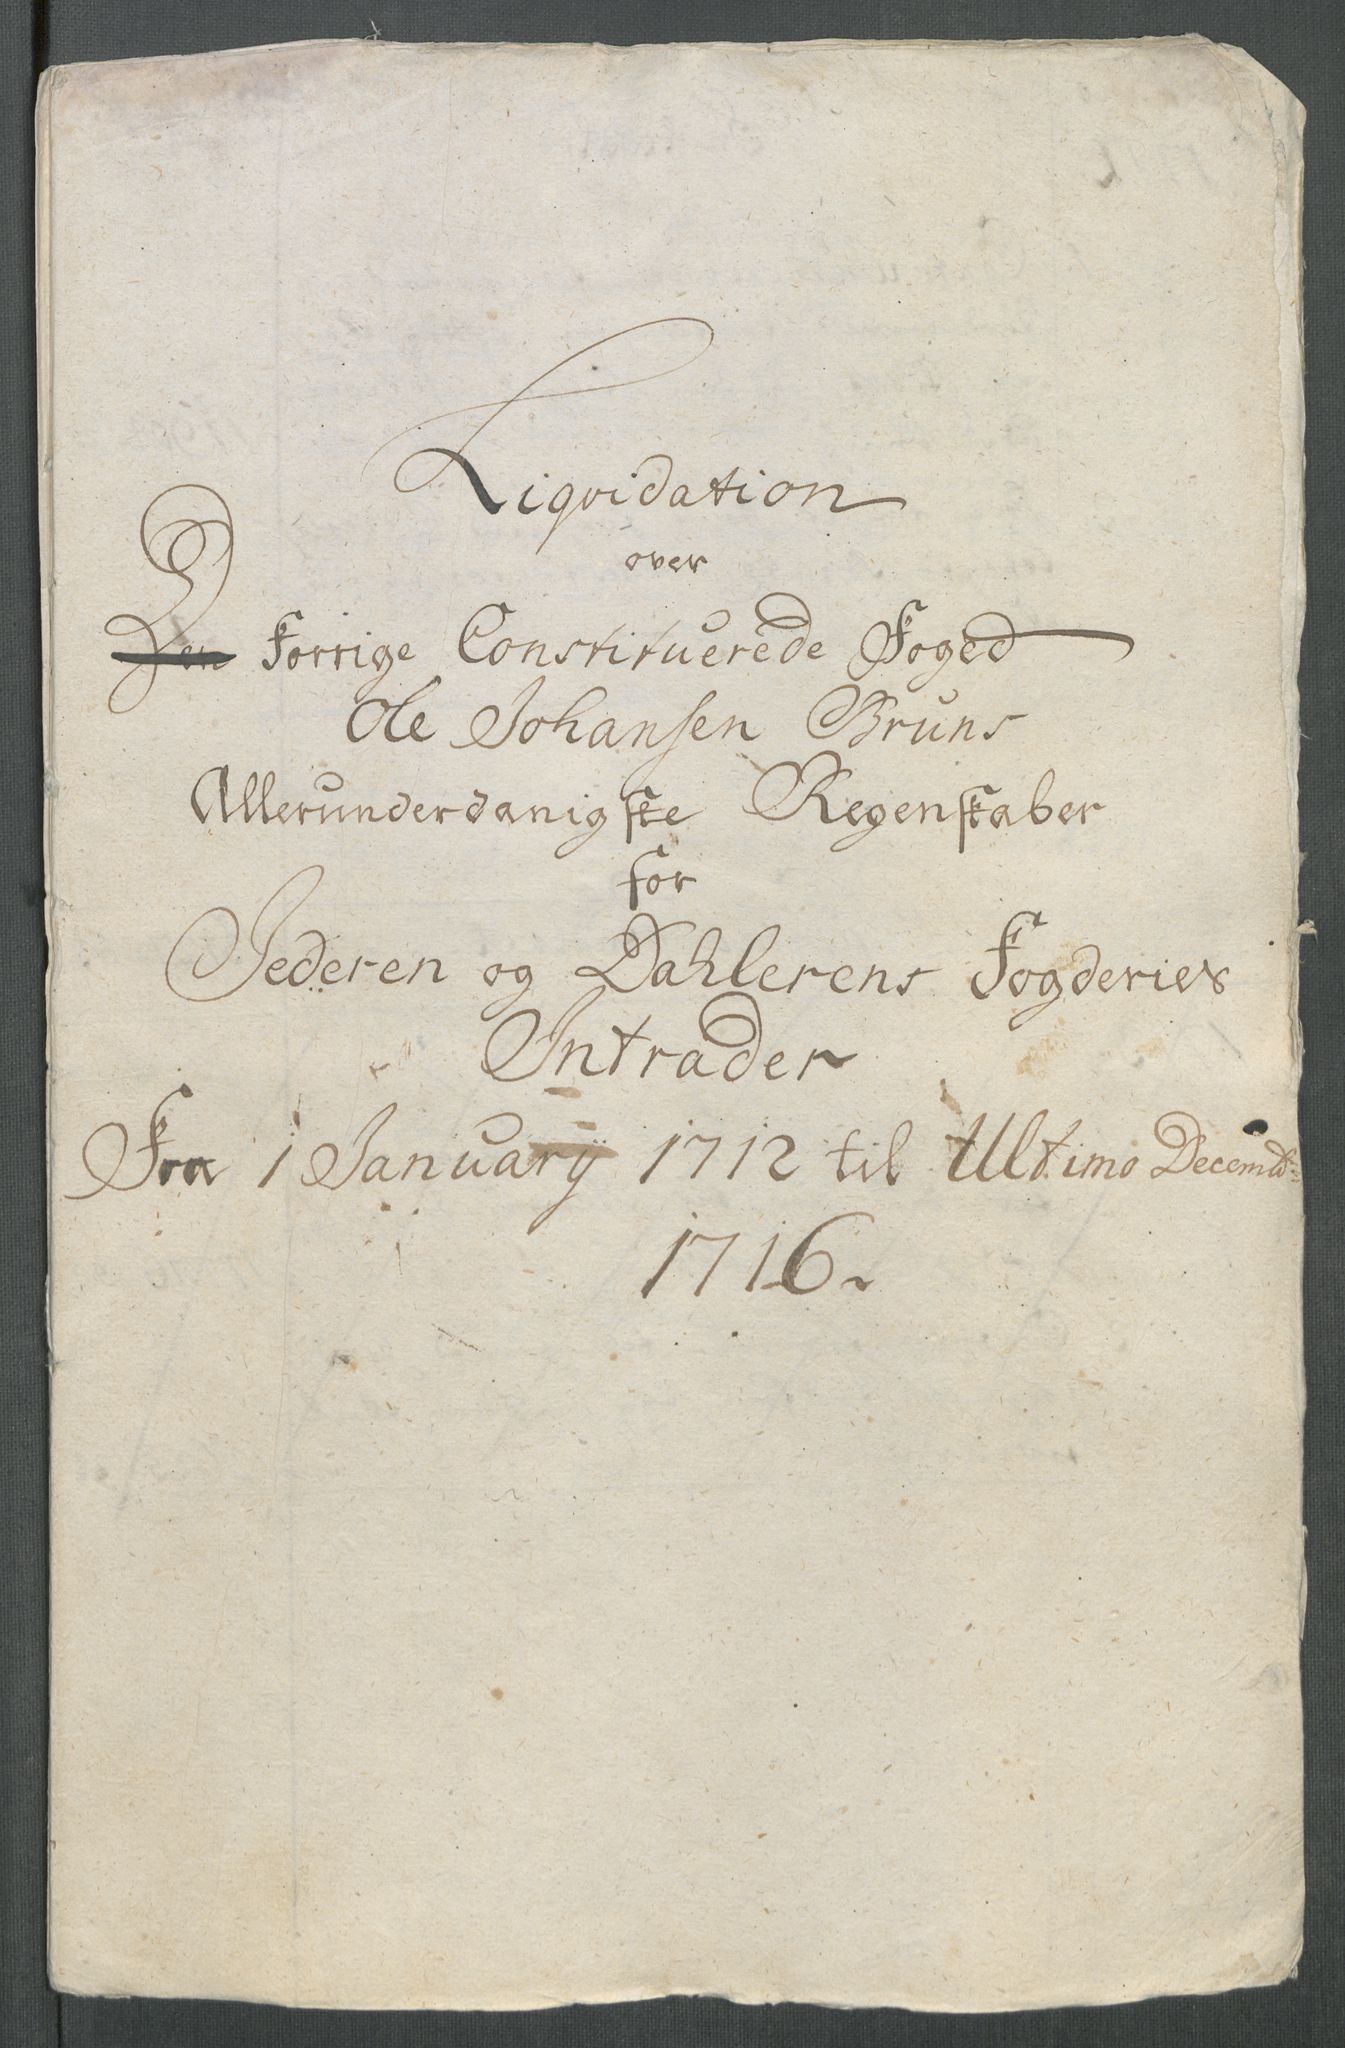 Liqvidation
over
Den Forrige Constituerede Foged
Ole Johansen Bruns
Allerunderdanigste Regenskaber
for
Jederen og Dahlerens Fogderies
Intrader
Fra 1 January 1712 til Ultimo Decemb:
1716.